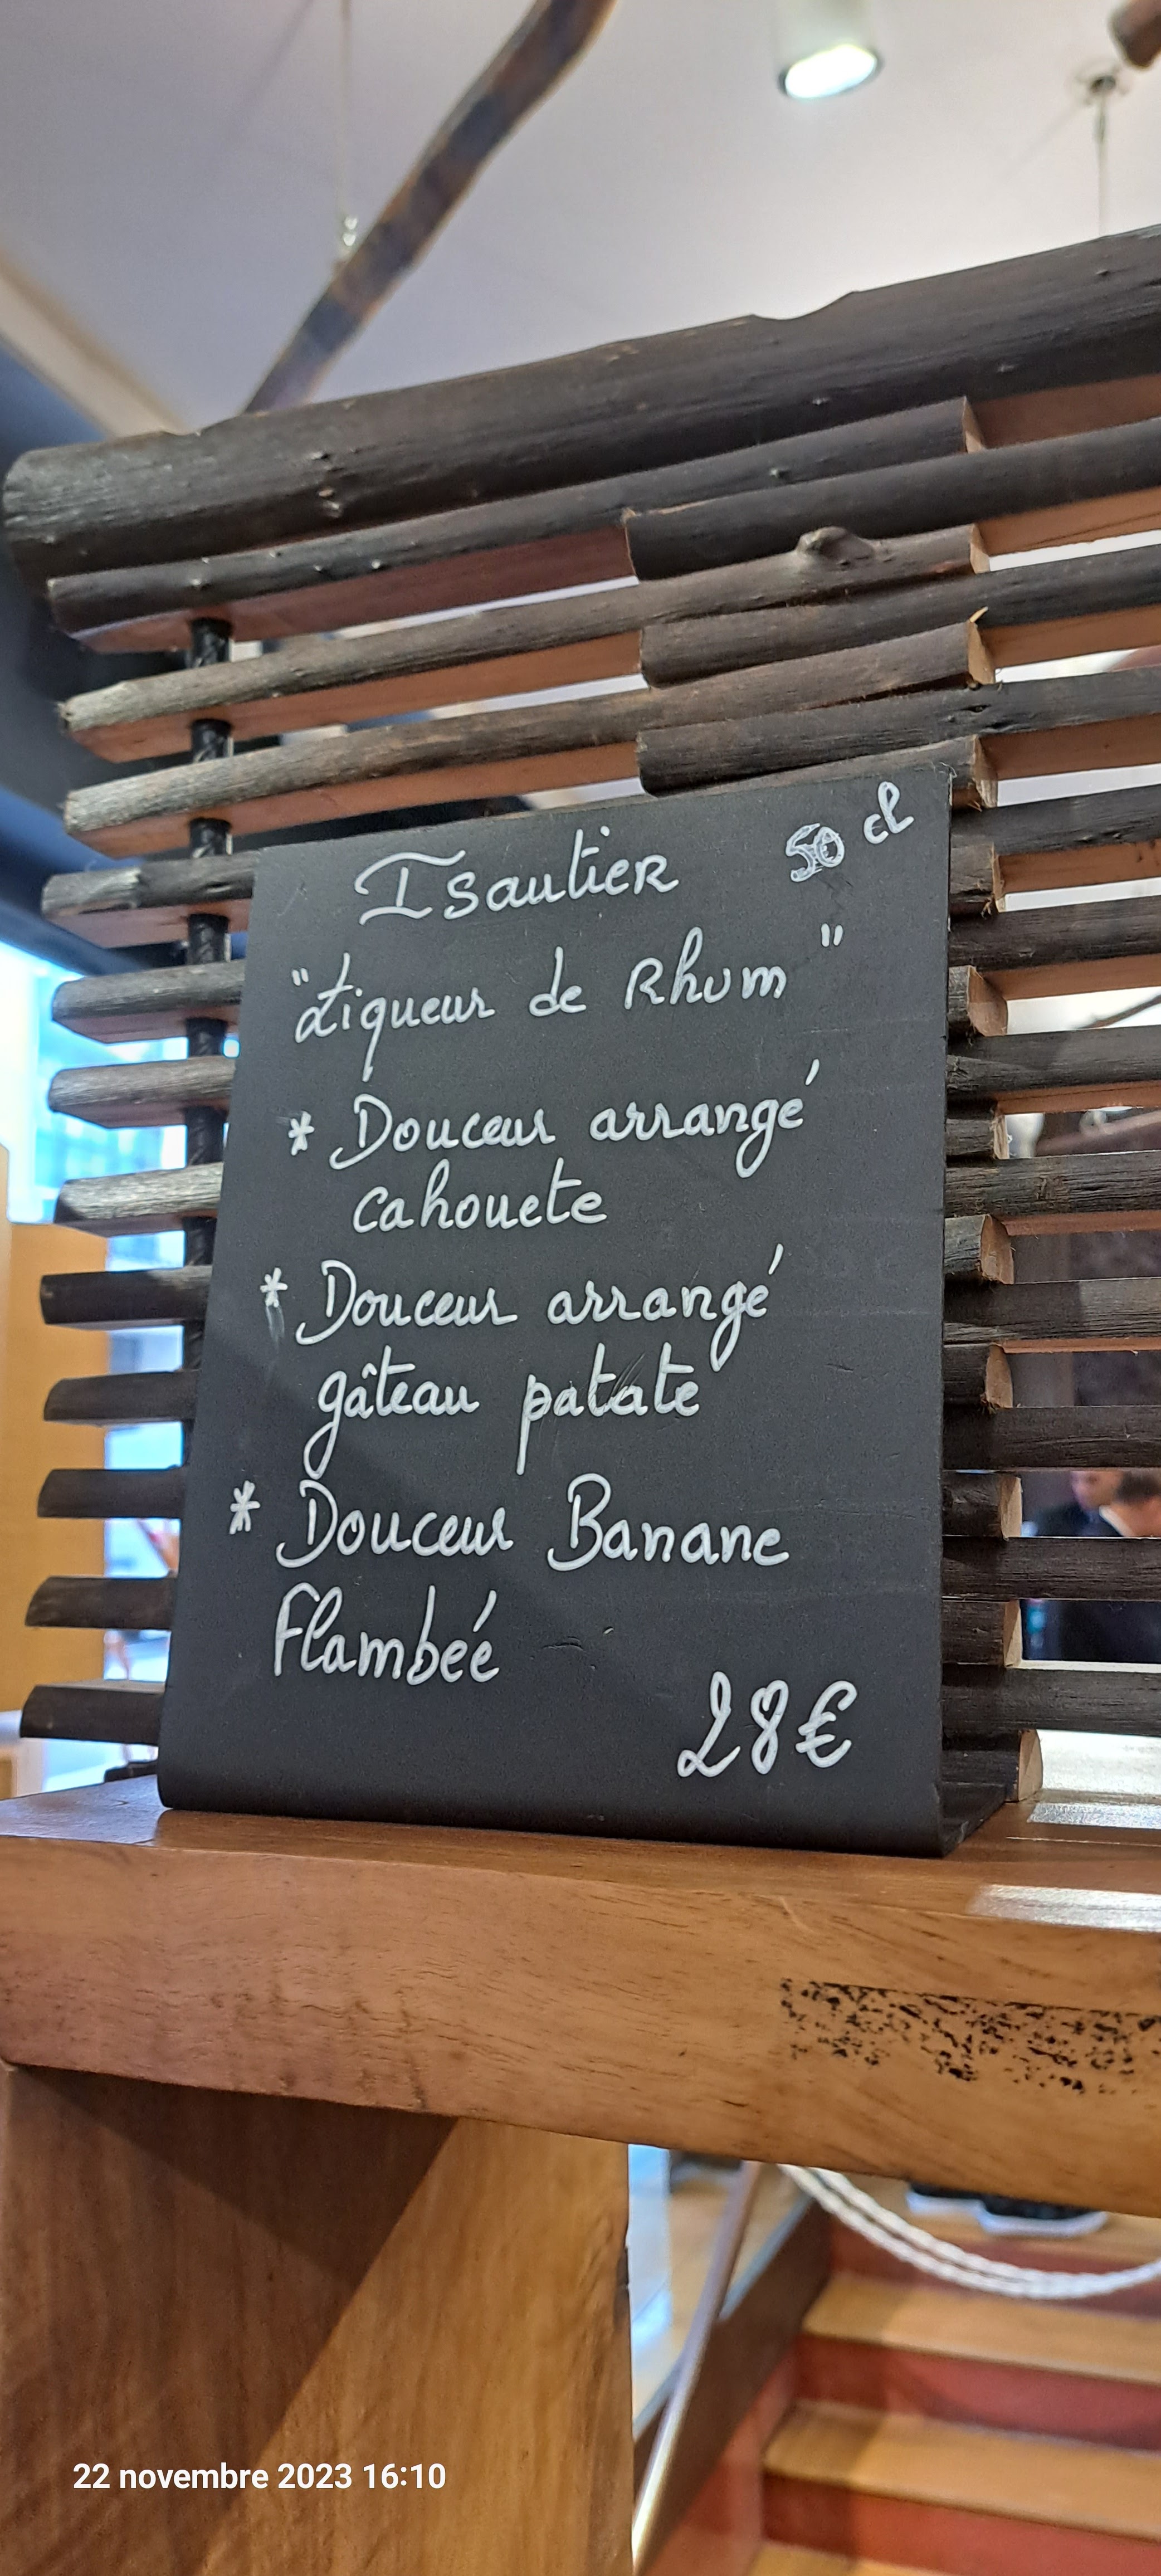 Isautier 50 cl
"Liqueur de Rhum"
* Douceur arrangé
cahouete
* Douceur arrangé
gâteau patate
* Douceur Banane
Flambéé
28€
22 novembre 2023 16:10